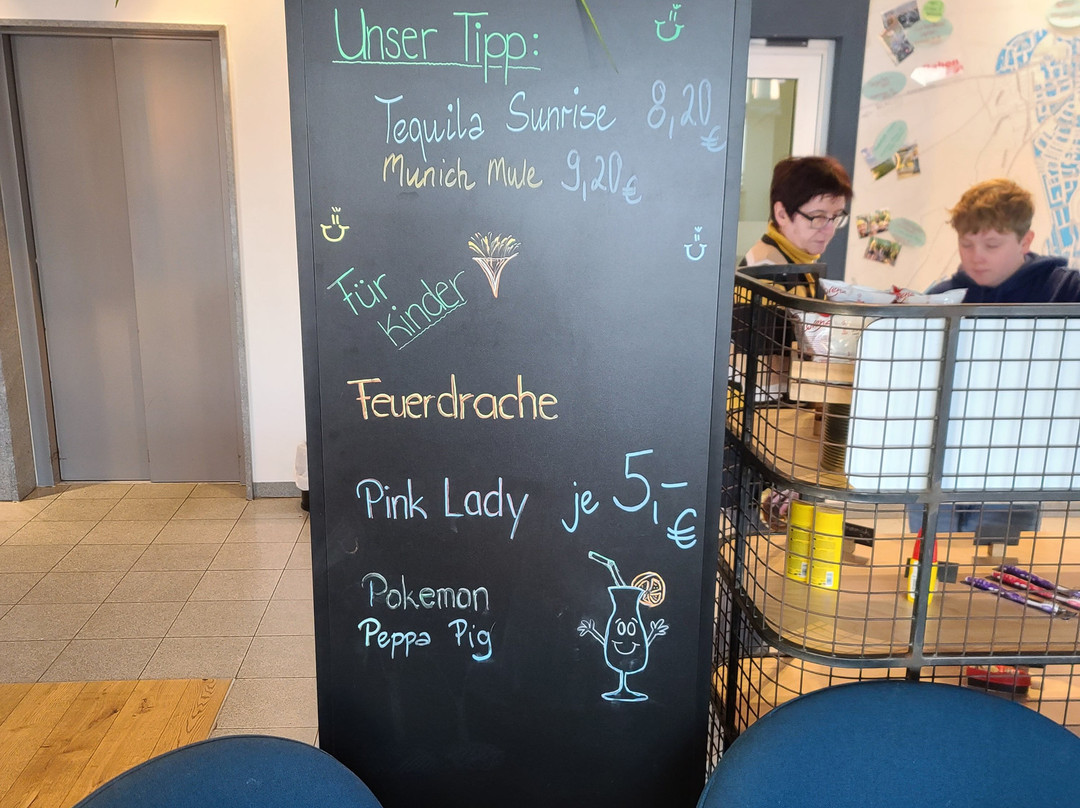 Unser Tipp:
Tequila Sunrise 8,20 €
Munich Mule 9,20 €
Für
Kinder
Feuerdrache
Pink Lady je 5,- €
Pokemon
Peppa Pig